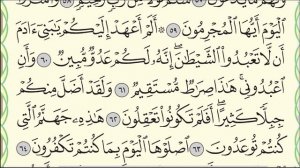 ٱلْيَوْمَ أَيُّهَا ٱلْمُجْرِمُونَ ٥٩ ۞ أَلَمْ أَعْهَدْ إِلَيْكُمْ يَٰبَنِىٓ ءَادَمَ
أَن لَّا تَعْبُدُوا۟ ٱلشَّيْطَٰنَ ۖ إِنَّهُۥ لَكُمْ عَدُوٌّ مُّبِينٌ ٦٠ وَأَنِ
ٱعْبُدُونِى ۚ هَٰذَا صِرَٰطٌ مُّسْتَقِيمٌ ٦١ وَلَقَدْ أَضَلَّ مِنكُمْ
جِبِلًّا كَثِيرًا ۖ أَفَلَمْ تَكُونُوا۟ تَعْقِلُونَ ٦٢ هَٰذِهِۦ جَهَنَّمُ ٱلَّتِى
كُنتُمْ تُوعَدُونَ ٦٣ ٱصْلَوْهَا ٱلْيَوْمَ بِمَا كُنتُمْ تَكْفُرُونَ ٦٤